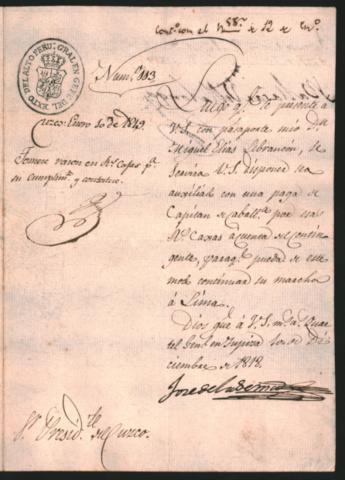 Cont.on con el N. 58. de 12 de En.o
GRAL EN GEFE DEL EXTO DEL ALTO PERU
Num.o 113
Cuzco: Enero 10 de 1819.
Tomese razon en R.s Caxas p.a
su cumplim.to y contextese.
Luego q.e se presente á
V.S. con pasaporte mio D.n
Miguel Elias, se
servirá V.S. disponer sea
auxiliado con una paga de
Capitan de Caball.ria por esas
R.s Caxas á cuenta del contin
gente, para q.e pueda de este
modo continuar su marcha
á Lima.
Dios gue á V.S. m.s a.s Quar
tel Gen.l en Tupiza de Di
ciembre de 1818.
José de la Serna
S.r Presid.te del Cuzco.